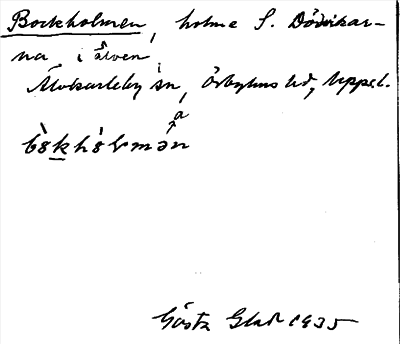 Bockholmen, holme S. Dödvikar-
na i älven,
Älvkarleby sn, Örbyhus hd, Uppl.
a
bòkhòlmən
Gösta Glad 1935